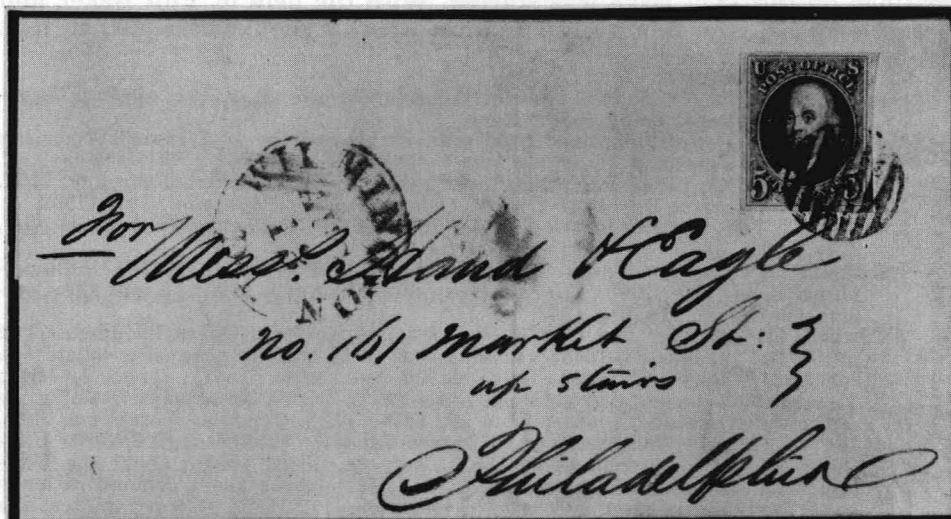 U S
POST OFFICE
5
For
Mess. Hand & Eagle
No. 161 Market St:
up stairs
Philadelphia